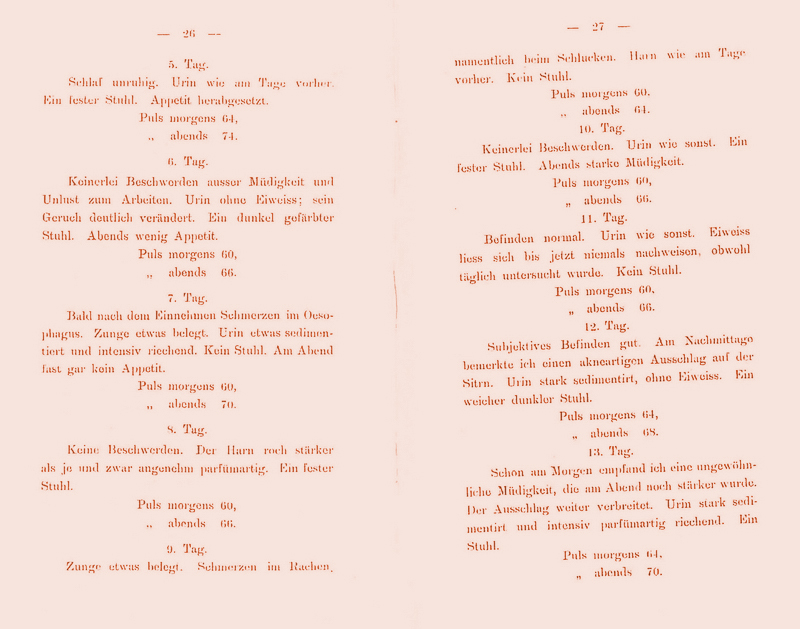 — 26 —
5. Tag.
Schlaf unruhig. Urin wie am Tage vorher.
Ein fester Stuhl. Appetit herabgesetzt.
Puls morgens 64,
„ abends 74.
6. Tag.
Keinerlei Beschwerden ausser Müdigkeit und
Unlust zum Arbeiten. Urin ohne Eiweiss; sein
Geruch deutlich verändert. Ein dunkel gefärbter
Stuhl. Abends wenig Appetit.
Puls morgens 60,
„ abends 66.
7. Tag.
Bald nach dem Einnehmen Schmerzen im Oeso-
phagus. Zunge etwas belegt. Urin etwas sedimen-
tiert und intensiv riechend. Kein Stuhl. Am Abend
fast gar kein Appetit.
Puls morgens 60,
„ abends 70.
8. Tag.
Keine Beschwerden. Der Harn roch stärker
als je und zwar angenehm parfümartig. Ein fester
Stuhl.
Puls morgens 60,
„ abends 66.
9. Tag.
Zunge etwas belegt. Schmerzen im Rachen,
— 27 —
namentlich beim Schlucken. Harn wie am Tage
vorher. Kein Stuhl.
Puls morgens 60.
„ abends 64.
10. Tag.
Keinerlei Beschwerden. Urin wie sonst. Ein
fester Stuhl. Abends starke Müdigkeit.
Puls morgens 60,
„ abends 66.
11. Tag.
Befinden normal. Urin wie sonst. Eiweiss
liess sich bis jetzt niemals nachweisen, obwohl
täglich untersucht wurde. Kein Stuhl.
Puls morgens 60,
„ abends 66.
12. Tag.
Subjektives Befinden gut. Am Nachmittage
bemerkte ich einen akneartigen Ausschlag auf der
Stirn. Urin stark sedimentirt, ohne Eiweiss. Ein
weicher dunkler Stuhl.
Puls morgens 64,
„ abends 68.
13. Tag.
Schon am Morgen empfand ich eine ungewöhn-
liche Müdigkeit, die am Abend noch stärker wurde.
Der Ausschlag weiter verbreitet. Urin stark sedi-
mentirt und intensiv parfümartig riechend. Ein
Stuhl.
Puls morgens 64,
„ abends 70.